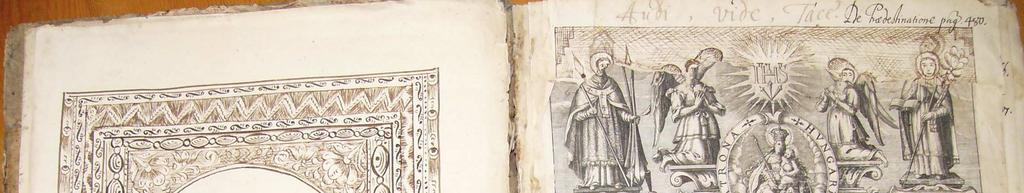 Audi, vide, Tace. De Prædestinatione pag. 480.
IHS
PATRONA + HUNGAR
7.